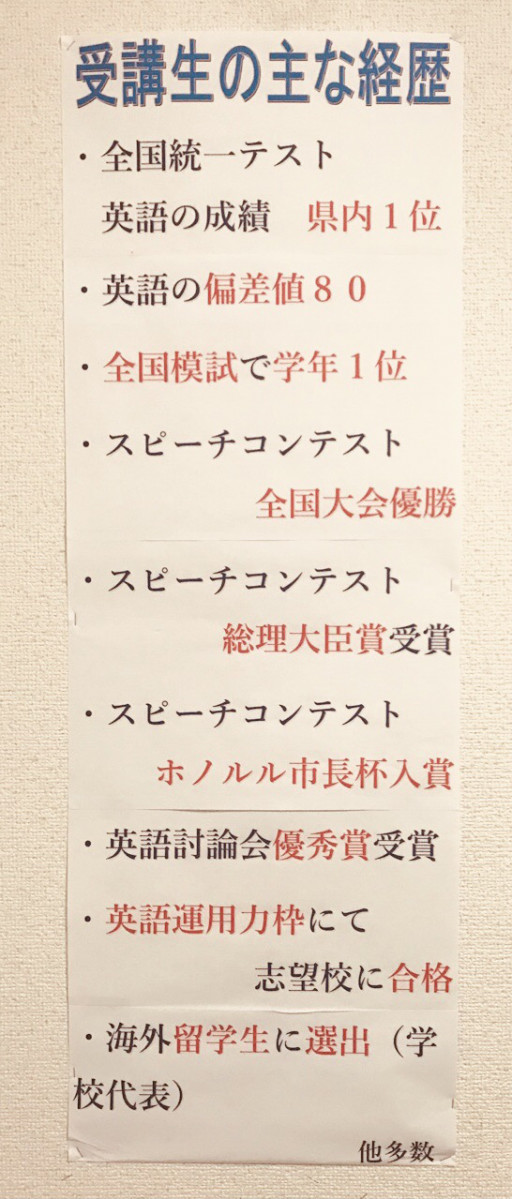 受講生の主な経歴
・全国統一テスト
英語の成績　県内１位
・英語の偏差値８０
・全国模試で学年１位
・スピーチコンテスト
全国大会優勝
・スピーチコンテスト
総理大臣賞受賞
・スピーチコンテスト
ホノルル市長杯入賞
・英語討論会優秀賞受賞
・英語運用力枠にて
志望校に合格
・海外留学生に選出（学
校代表）
他多数